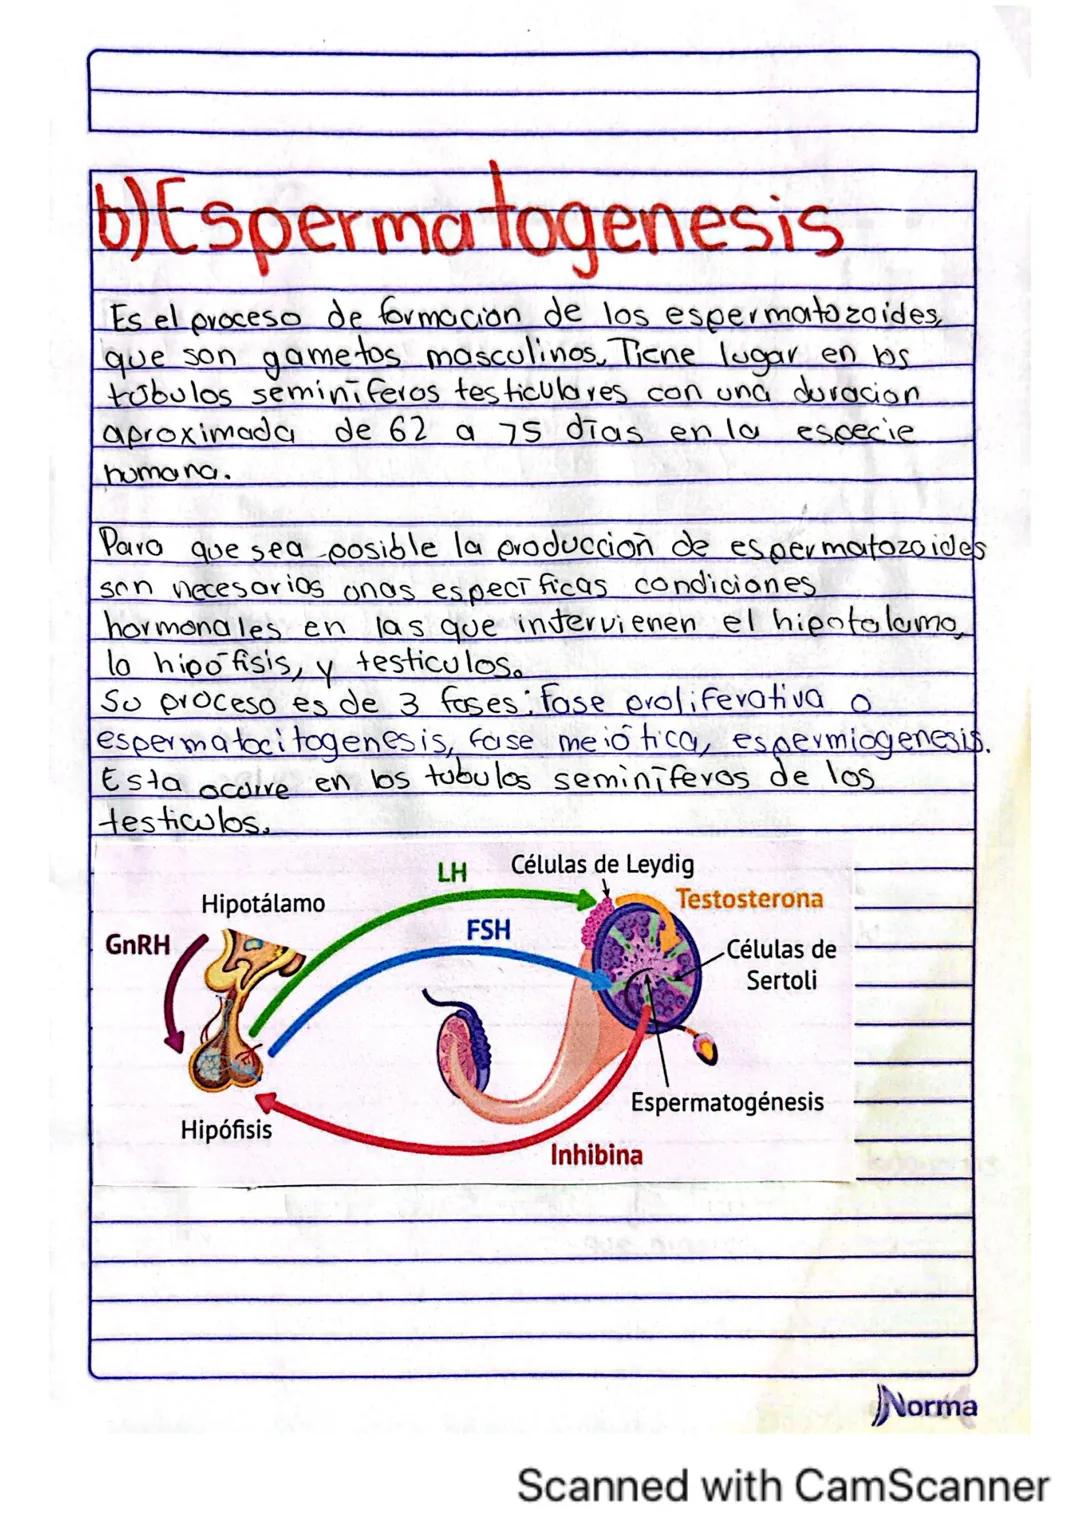 b) Espermatogenesis
Es el proceso de formacion de los espermatozoides,
que son gametos masculinos. Tiene lugar en los
túbulos seminíferos testiculares con una duracion
aproximada de 62 a 75 días en la especie
humana.
Para que sea posible la producción de espermatozoides
son necesarias unas específicas condiciones
hormonales en las que intervienen el hipotalamo,
la hipófisis, y testiculos.
Su proceso es de 3 fases: fase proliferativa o
espermatocitogenesis, fase meiótica, espermiogenesis.
Esta ocurre en los tubulos seminíferos de los
testiculos.
LH
Células de Leydig
Hipotálamo
Testosterona
GnRH
FSH
Células de
Sertoli
Espermatogénesis
Hipófisis
Inhibina
Norma
Scanned with CamScanner